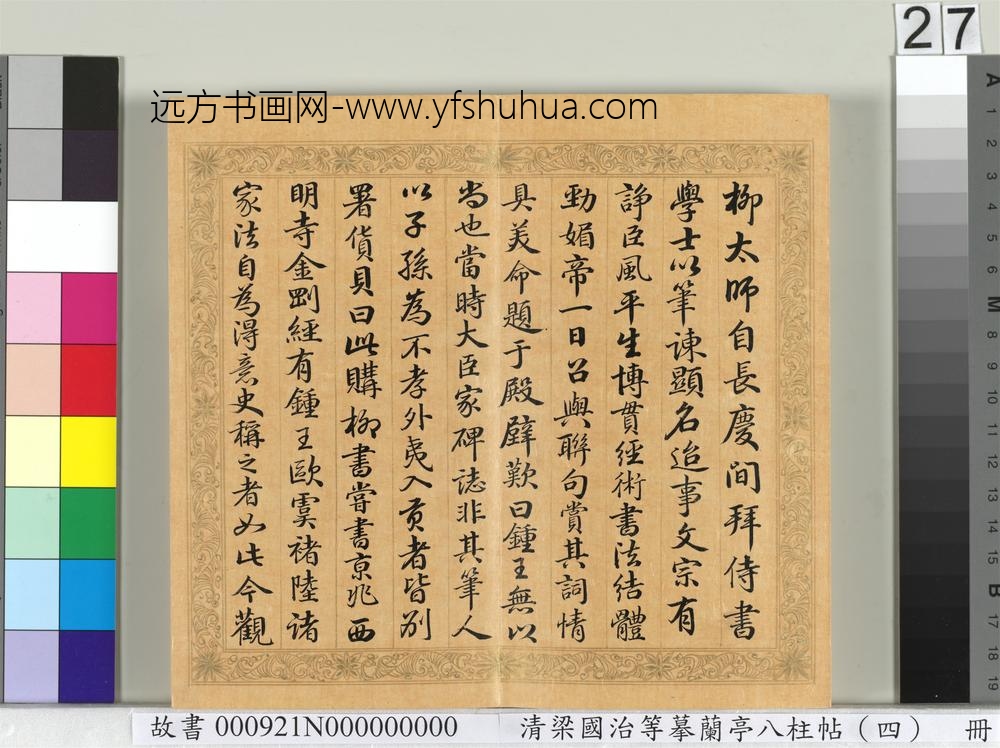 27
远方书画网-www.yfshuhua.com
柳太師自長慶間拜侍書
學士以筆諫顯名迨事文宗有
諍臣風平生博貫經術書法結體
勁媚帝一日召與聯句賞其詞情
具美命題于殿壁歎曰鍾王無以
尚也當時大臣家碑誌非其筆人
以子孫為不孝外夷入貢者皆別
署貨貝曰此購柳書嘗書京兆西
明寺金剛經有鍾王歐虞褚陸諸
家法自為得意史稱之者如此今觀
A
1
2
3
4
5
6
M
8
9
10
11
12
13
14
15
B
17
18
19
故書 000921N000000000 清梁國治等摹蘭亭八柱帖（四） 冊